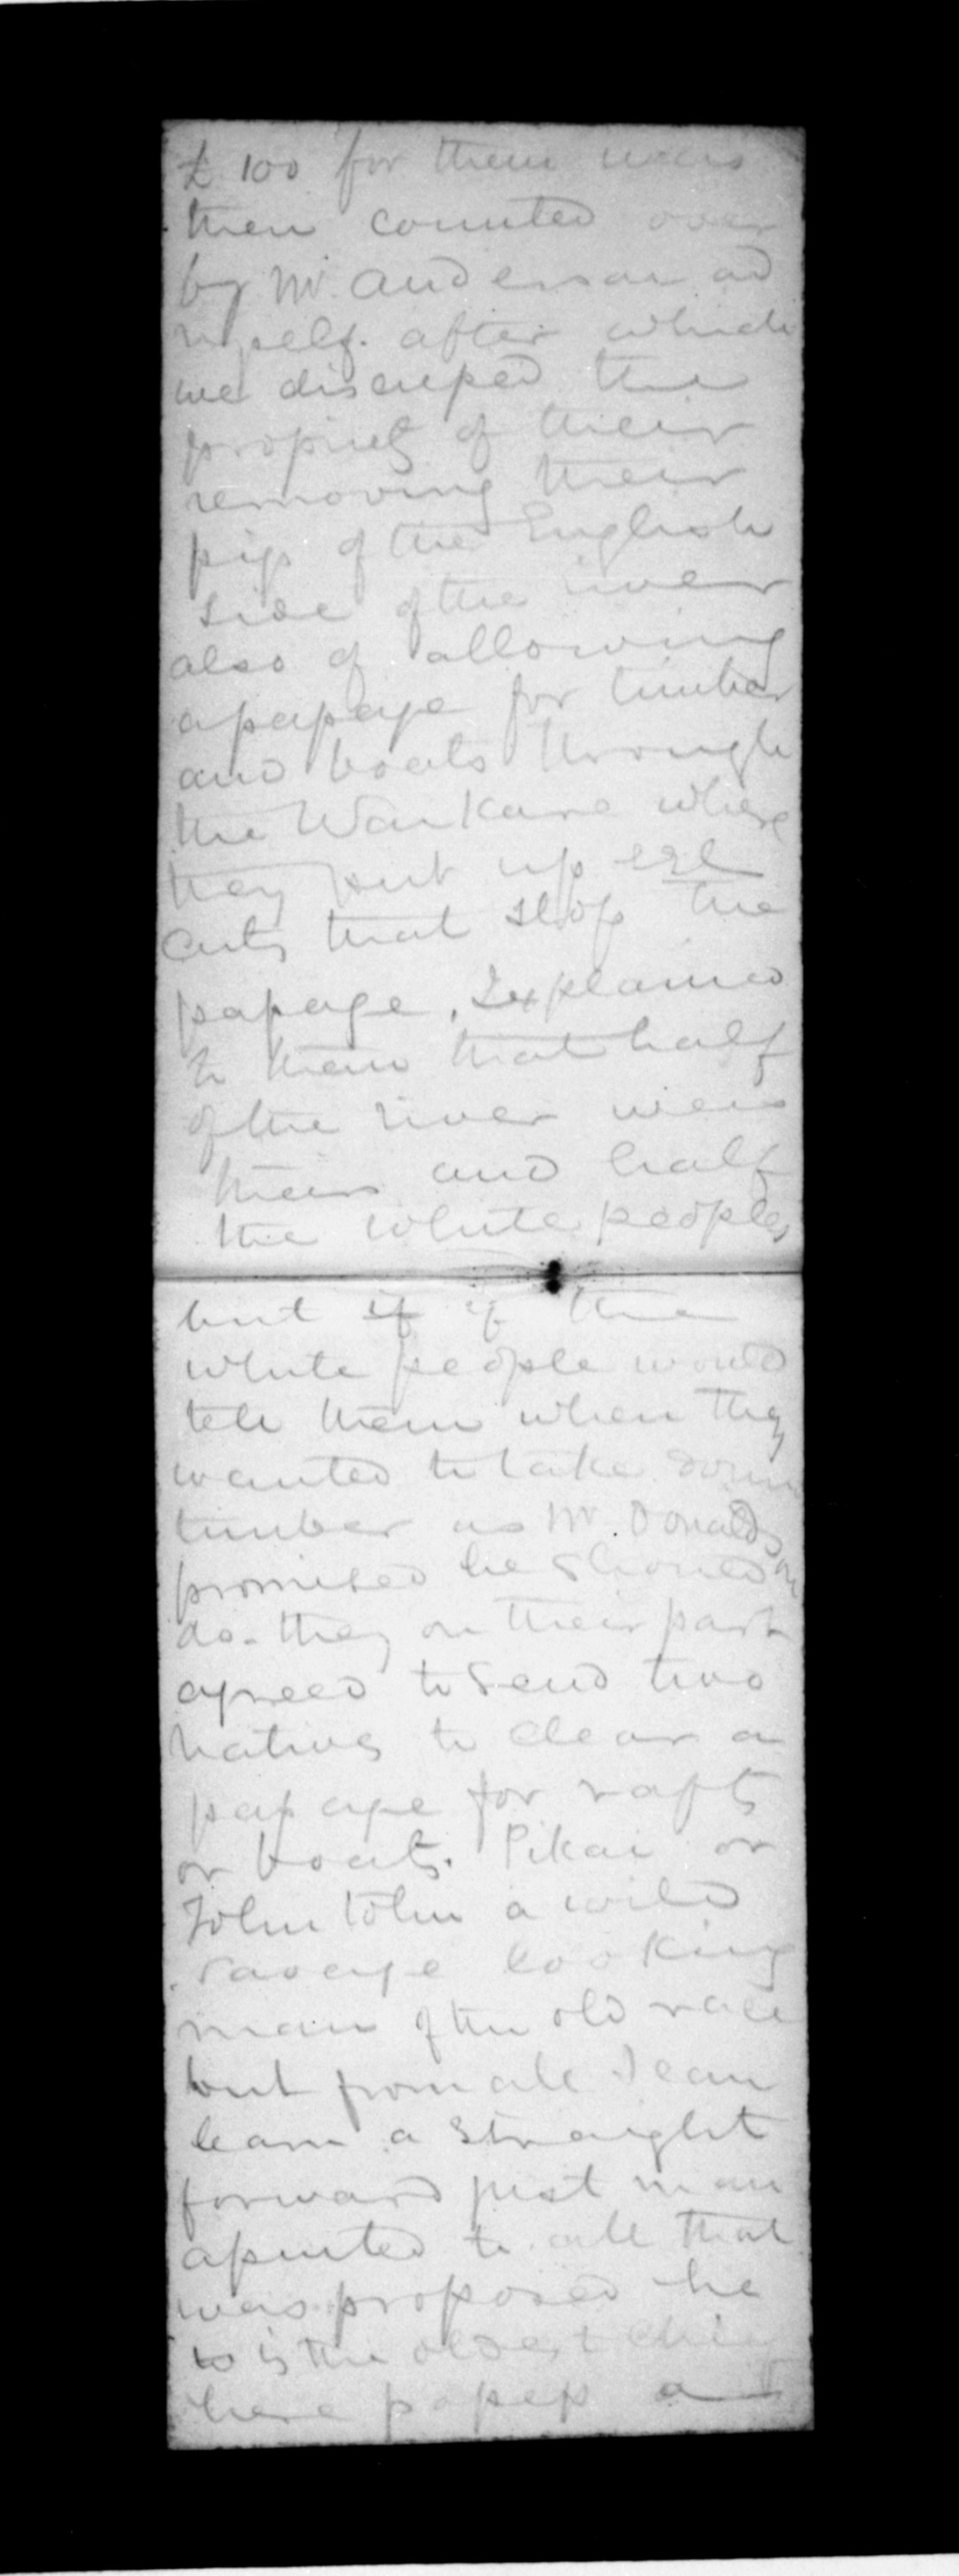 £100 for them was
then counted over
by Mr. Anderson and
myself. after which
we discussed the
propriety of their
removing their
pigs of the English
side of the river
also of allowing
a passage for timber
and boats through
the Waikare where
they put up eel
cuts that stop the
passage. I explained
to them that half
of the river was
theirs and half
the white peoples
but if if the
white people would
tell them when they
wanted to take down
timber as Mr. Donaldson
promised he should
do - they on their part
agreed to send two
natives to clear a
passage for rafts
or boats. Pikai or
John tohu a wild
savage looking
man of the old race
but from all I can
learn a straight
forward just man
assented to all that
was proposed he
to is the oldest chief
here possess a